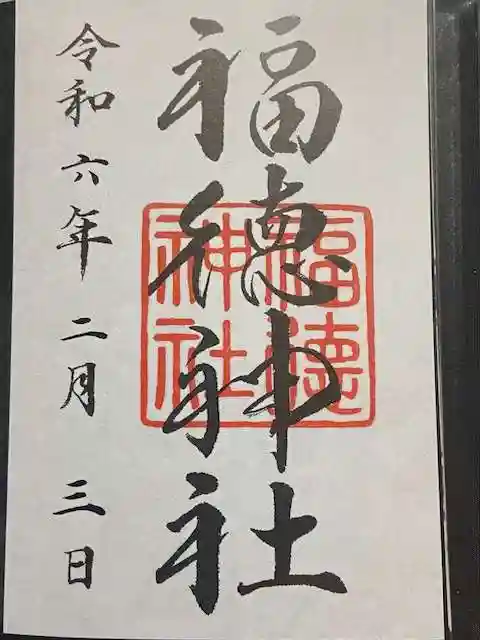 福徳神社
福徳
神社
令和六年二月三日